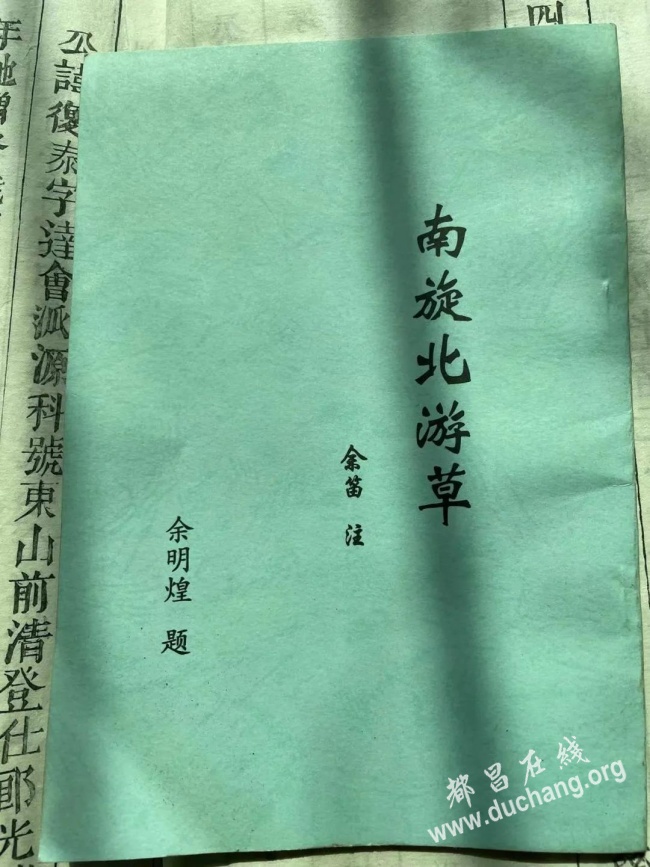 四
南旋北游草
余笛 注
余明煌 题
公諱復泰字達會派源科號東山前清登仕郎光
都昌在线
www.duchang.org